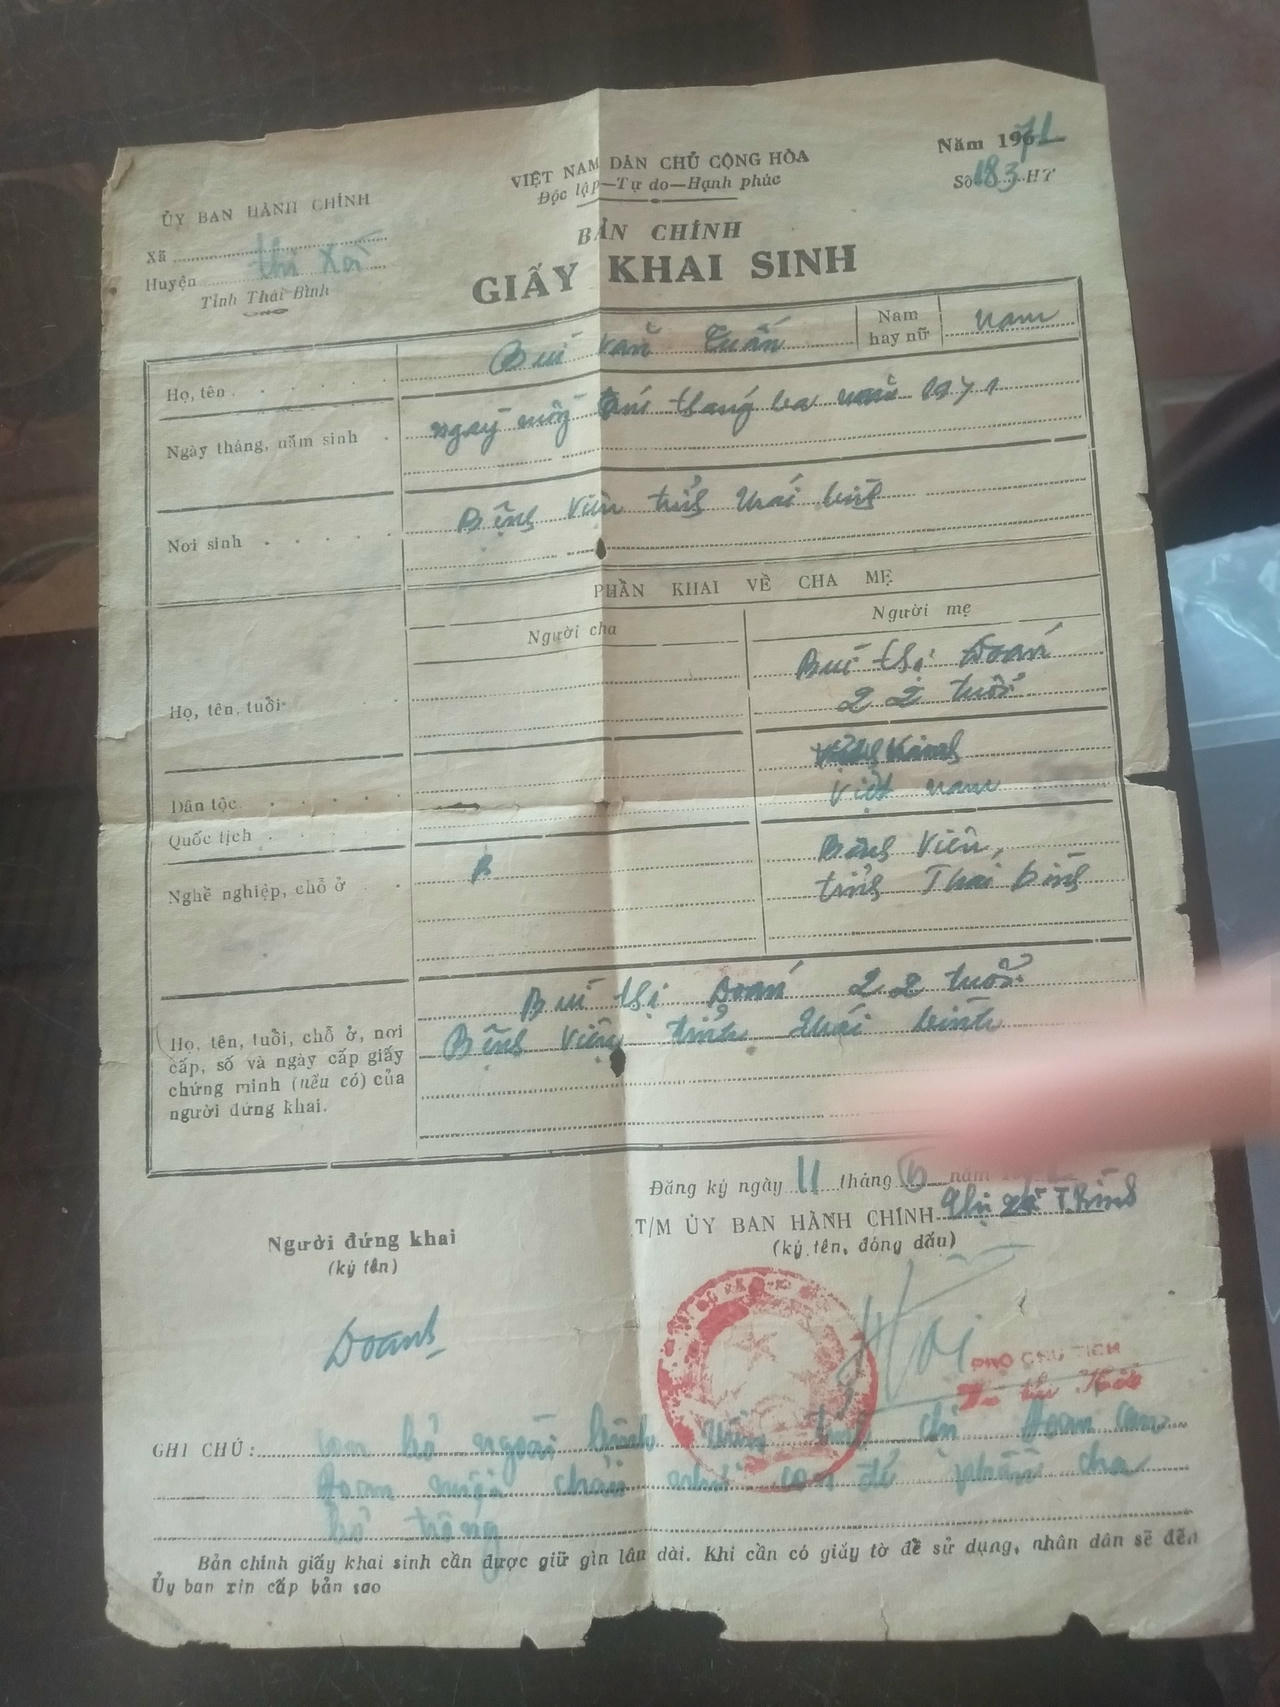 Năm 1971
Số 183 HT
VIỆT NAM DÂN CHỦ CỘNG HÒA
Độc lập—Tự do—Hạnh phúc
ỦY BAN HÀNH CHÍNH
Xã
Huyện thị xã
Tỉnh Thái Bình
BẢN CHÍNH
GIẤY KHAI SINH
Họ, tên Bùi Văn Tuấn
Nam hay nữ nam
Ngày tháng, năm sinh ngày tháng ba năm 1971
Nơi sinh Bệnh Viện tỉnh thái bình
PHẦN KHAI VỀ CHA MẸ
Người cha
Người mẹ
Họ, tên, tuổi
Bùi thị Doan
22 tuổi
Dân tộc
Quốc tịch
Việt nam
Nghề nghiệp, chỗ ở
B
Bệnh Viện
tỉnh Thái bình
Họ, tên, tuổi, chỗ ở, nơi
cấp, số và ngày cấp giấy
chứng minh (nếu có) của
người đứng khai.
Bùi thị Doan 22 tuổi
Bệnh Viện tỉnh thái bình
Đăng ký ngày 11 tháng năm
T/M ỦY BAN HÀNH CHÍNH Thị xã T. Bình
(ký tên, đóng dấu)
Người đứng khai
(ký tên)
Doanh
PHÓ CHỦ TỊCH
GHI CHÚ: bỏ ngoài bệnh viện chị Doan
Doan nuôi cháu như con đẻ phần cha
bỏ trống
Bản chính giấy khai sinh cần được giữ gìn lâu dài. Khi cần có giấy tờ để sử dụng, nhân dân sẽ đến
Ủy ban xin cấp bản sao